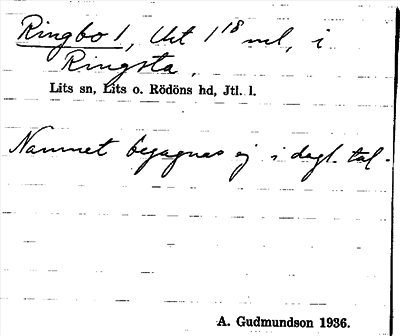 Ringbo 1, Urt 1¹⁸ ml, i
Ringsta.
Lits sn, Lits o. Rödöns hd, Jtl. l.
Namnet begagnas ej i dagl. tal.
A. Gudmundson 1936.